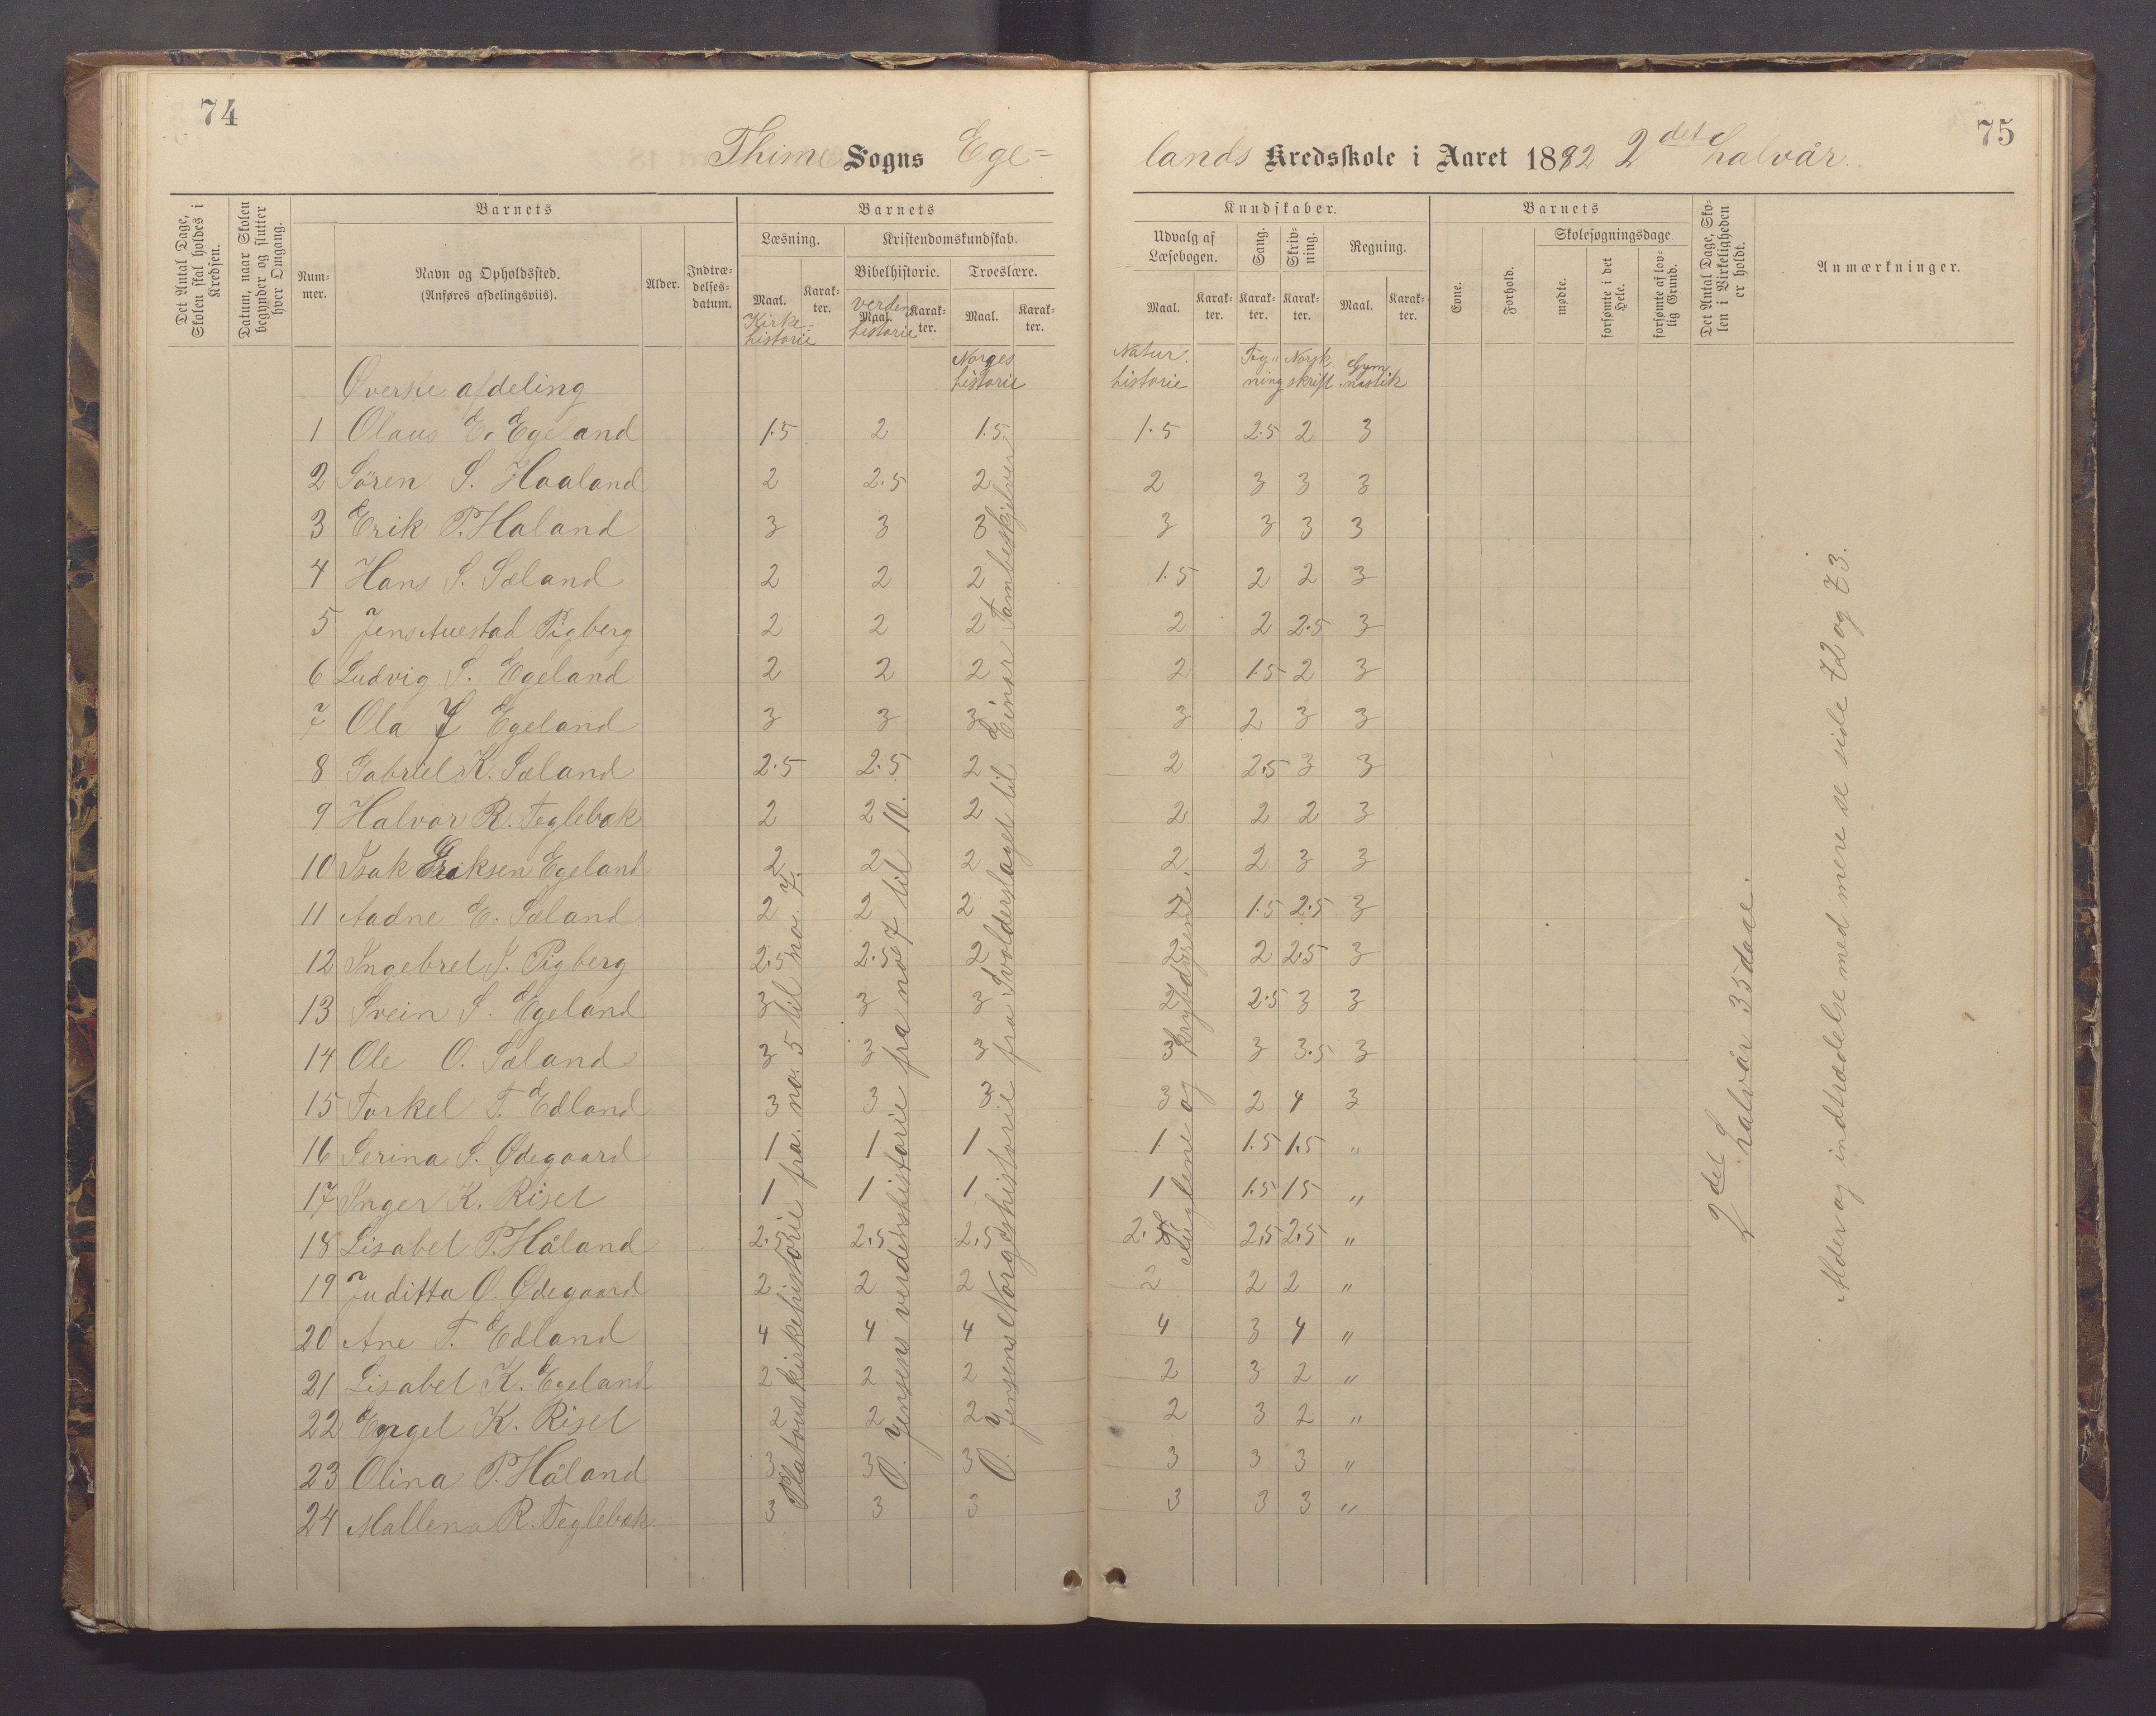 74
75
Thime Sogns Ege=
lands Kredsskole i Aaret 1882 2det halvår.
Det Antal Dage, Skolen skal holdes i Kredsen.
Datum, naar Skolen begynder og slutter hver Omgang.
Barnets
Num-mer.
Navn og Opholdssted.
(Anføres afdelingsviis).
Alder.
Indtræ-delses-datum.
Barnets
Læsning.
Maal.
Karak-ter.
Kirke-historie
Kristendomskundskab.
Bibelhistorie.
Maal.
Karak-ter.
verdens historie
Troeslære.
Maal.
Karak-ter.
Norges historie
Kundskaber.
Udvalg af Læsebogen.
Maal.
Karak-ter.
Natur. historie
Sang.
Karak-ter.
Teg-ning
Skriv-ning.
Karak-ter.
Norsk. skrift
Regning.
Maal.
Karak-ter.
Gym-nastik
Barnets
Evne.
Forhold.
Skolesøgningsdage.
mødte.
forsømte i det Hele.
forsømte af lov-lig Grund.
Det Antal Dage, Sko-len i Virkeligheden er holdt.
Anmærkninger.
Øverste afdeling
1 Olaus E. Egeland 1.5 2 1.5 1.5 2.5 2 3
2 Søren S. Haaland 2 2.5 2 2 3 3 3
3 Erik P. Haland 3 3 3 3 3 3 3
4 Hans S. Sæland 2 2 2 1.5 2 2 3
5 Jens Auestad Pigberg 2 2 2 2 2 2.5 3
6 Ludvig S. Egeland 2 2 2 2 1.5 2 3
7 Ola J Egeland 3 3 3 3 2 3 3
8 Gabriel K. Sæland 2.5 2.5 2 2 2.5 3 3
9 Halvor R. Teglebæk 2 2 2 2 2 2 3
10 Isak Eriksen Egeland 2 2 2 2 2 3 3
11 Aadne E. Sæland 2 2 2 2 1.5 2.5 3
12 Ingebret J. Pigberg 2.5 2.5 2 2 2 2.5 3
13 Svein S. Egeland 3 3 3 2 2.5 3 3
14 Ole O. Sæland 3 3 3 3 3 3.5 3
15 Torkel T. Edland 3 3 3 3 2 4 3
16 Serina S. Ødegaard 1 1 1 1 1.5 1.5 "
17 Inger K. Riset 1 1 1 1 1.5 15 "
18 Lisabet P. Håland 2.5 2.5 2.5 2.5 2.5 2.5 "
19 Juditta O. Ødegaard 2 2 2 2 2 2 "
20 Ane T. Edland 4 4 4 4 3 4 "
21 Lisabet K. Egeland 2 2 2 2 3 2 "
22 Engel K. Riset 2 2 2 2 3 2 "
23 Olina P. Håland 3 3 3 3 3 3 "
24 Mallena R. Teglebæk 3 3 3 3 3 3 "
Platous kirkehistorie fra no. 5 til no. 7.
O. Jensens verdenshistorie fra no 7 til 10.
O. Jensens Norgeshistorie fra Svolderslaget til Einar Tambeskjelver
Fuglene og Krybdyrene.
2det halvår 35 dage.
Alder og indtrædelse med mere se side 72 og 73.